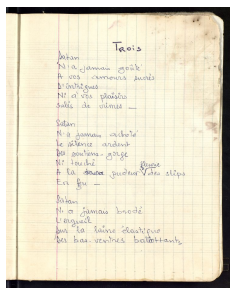 Trois
Satan
N'a jamais goûté
A vos amours sucrés
D'intrigues
Ni à vos plaisirs
salés de crimes —
Satan
N'a jamais acheté
Le silence ardent
Des soutiens-gorge
Ni touché
A la pudeur des slips
En feu —
Satan
N'a jamais brodé
L'orgueil
Sur la laine élastique
Des bas-ventres ballottants